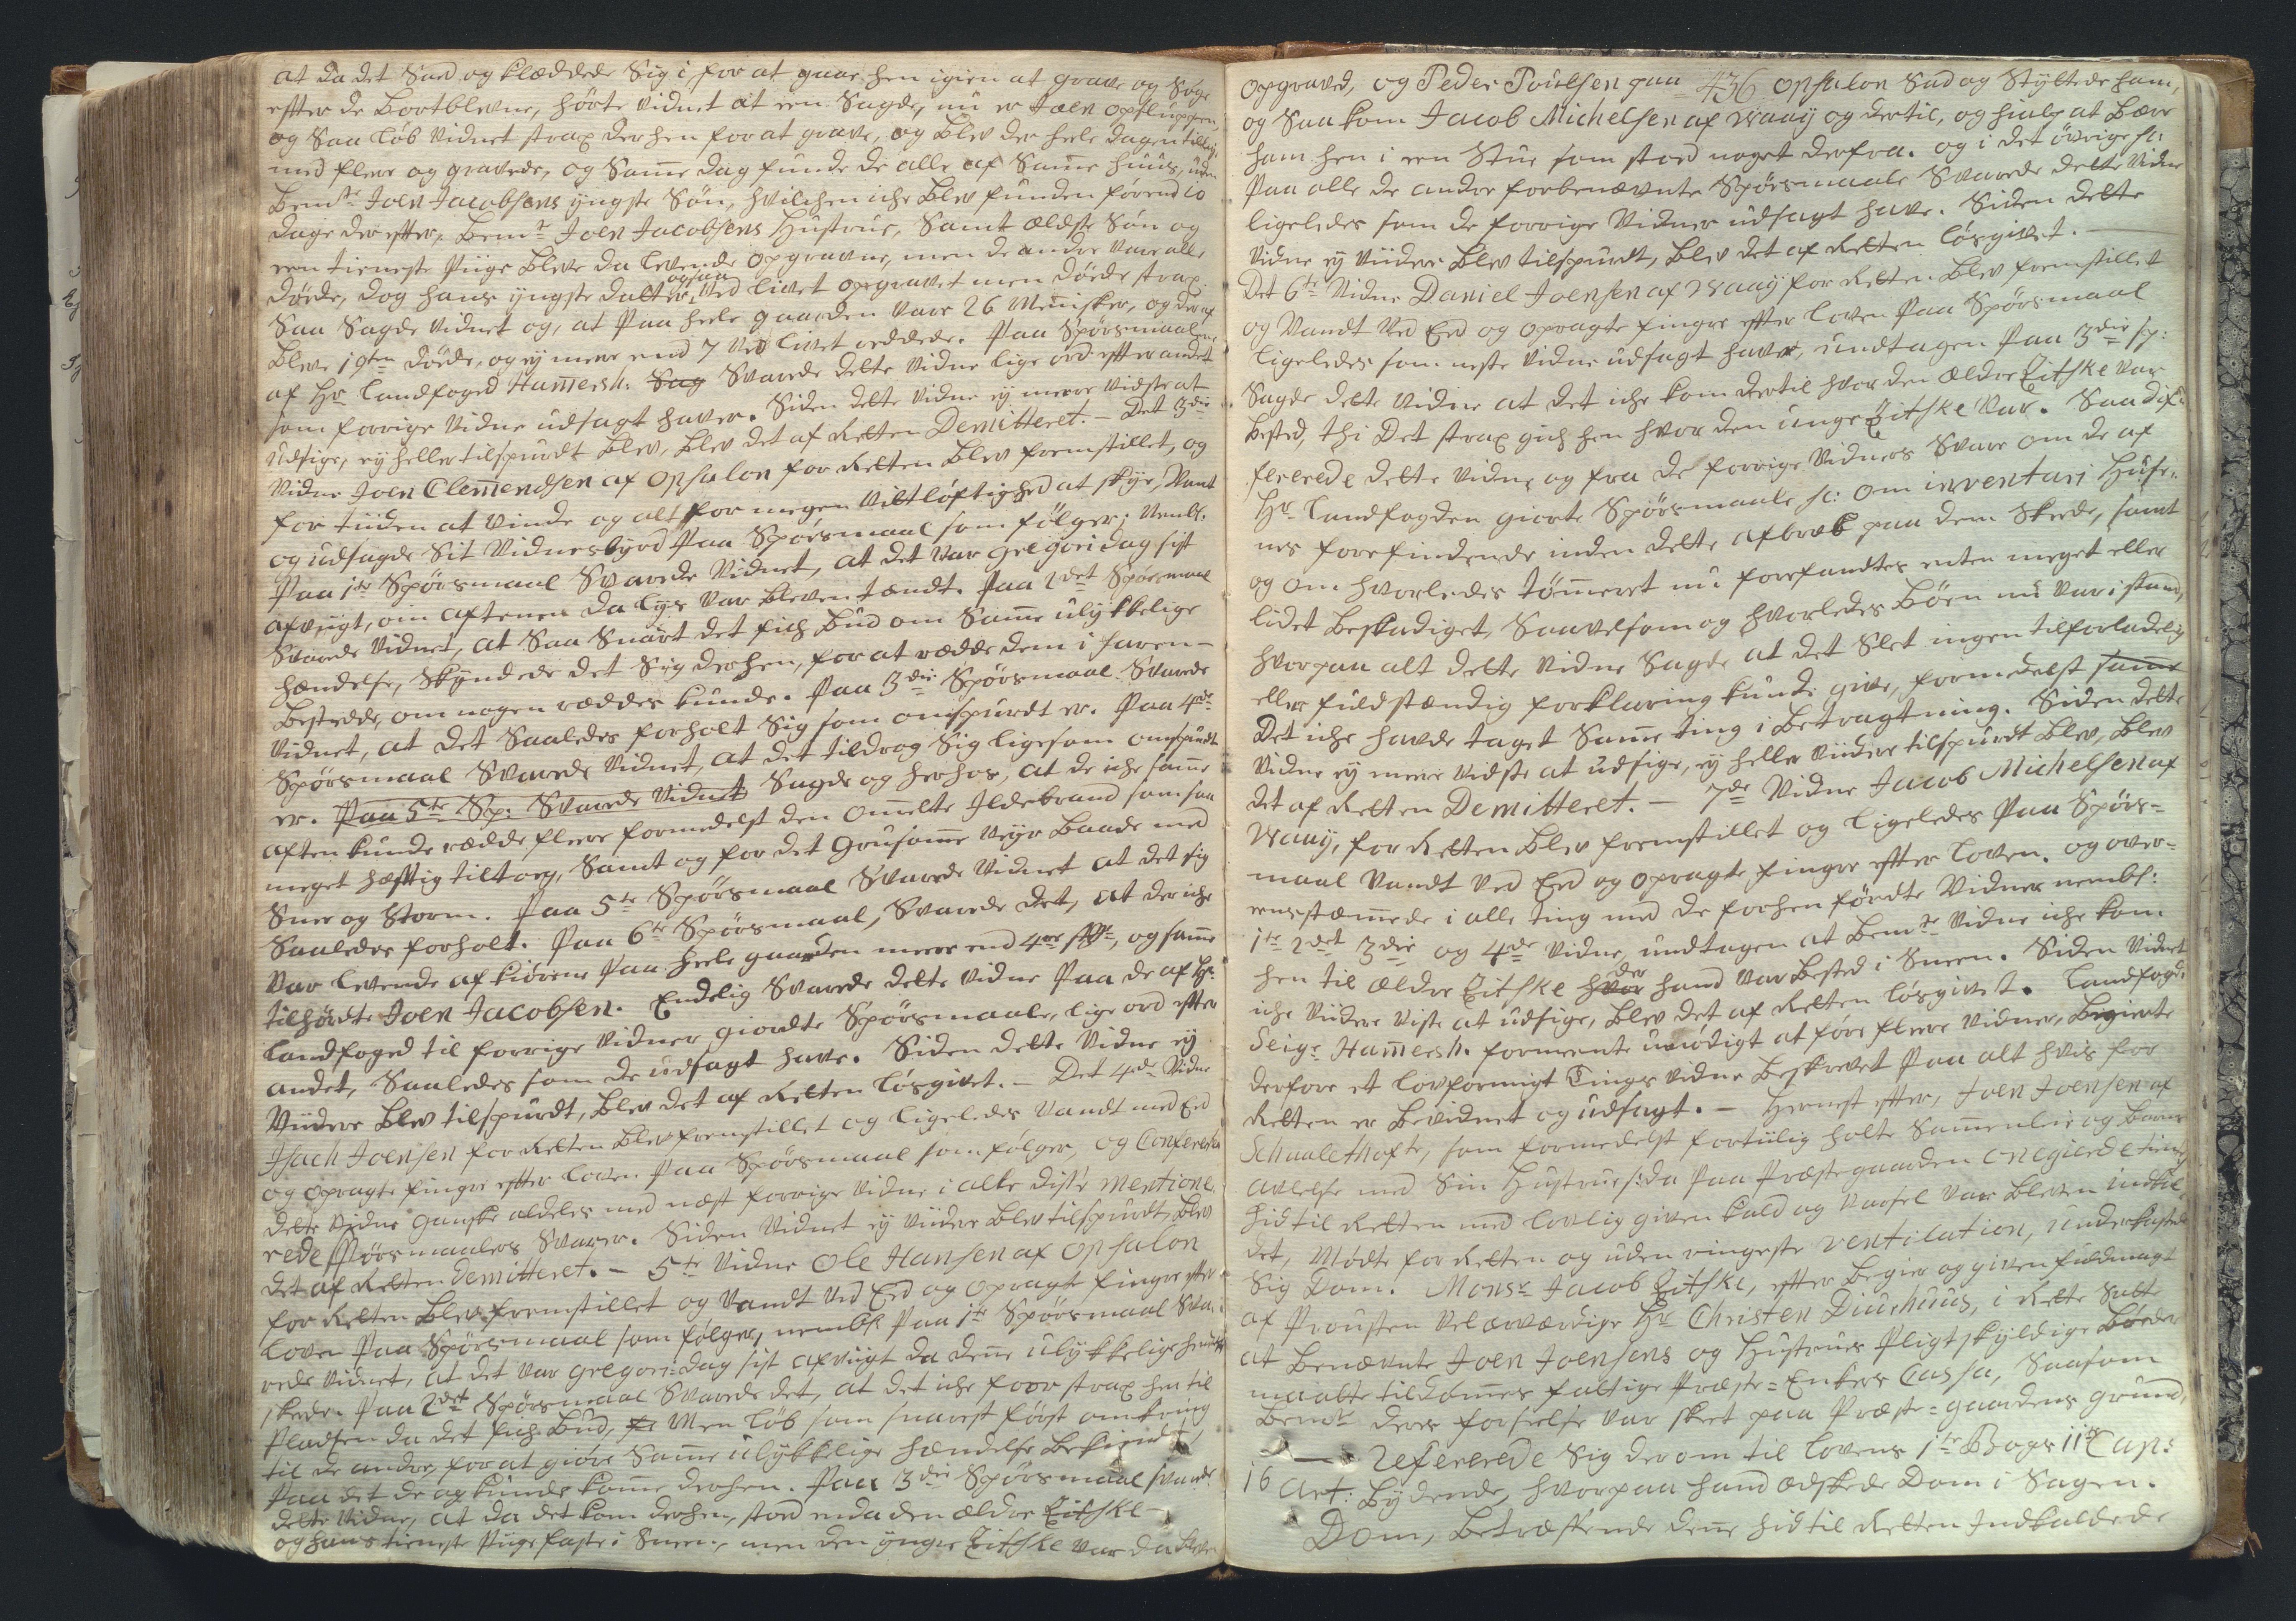 at da det Sad og klædede Sig i for at gaae hen igien at grave og Søge
effter de Bortblevne, hørte vidnet at een Sagde, nu er Joen opsluppen,
og Saa løb Vidnet strax derhen for at grave, og blev der heele dagen tillige
med fleere og gravede, og Samme dag funde de alle af Samme huus, uden
Bemte Joen Jacobsens yngste Søn, hvilchen iche blev funden førend 10
dage der effter, Bemte Joen Jacobsens Hustrue, Samt ældste Søn og
een tieneste Piige bleve da levende opgravne, men de andre vare alle
døde, dog hans yngste datter ogsaa ved livet opgravet men døde strax.
Saa Sagde Vidnet og, at paa heele gaarden vare 26 Mennisker, og deraf
blev 19ten døde, og ey meere end 7 ved livet reddede. Paa Spørsmaalene
af Hr Landfoged Hammersh: Sag Svarede dette Vidne lige ord effter andet
som forrige Vidne udsagt haver. Siden dette Vidne ey meere vidste at
udsige, ey heller tilspurdt blev, blev det af Retten Demitteret. – Det 3die
Vidne Joen Clemendsen af Opsalon for Retten blev fremstillet, og
for tiiden at vinde og alt for megen vitløftighed at skye, Vant
og udsagde Sit Vidnesbyrd paa Spørsmaal som følger; Nembl.
Paa 1te Spørsmaal Svarede Vidnet, at det var Gregori dag sist
afvigt, om aftenen da lys var bleven tændt. Paa 2det Spørsmaal
Svarede Vidnet, at Saa Snart det fich bud om Samme ulykkelige
hændelse, skyndede det Sig derhen, for at rædde dem i faren
bestedde, om nogen reddes kunde. Paa 3die Spørsmaal Svarede
Vidnet, at det Saaledes forholt Sig som omspurdt er. Paa 4de
Spørsmaal Svarede Vidnet, at det tildrog Sig ligesom omspurdt
er. Paa 5te Sp: Svarede Vidnet Sagde og herhos, at de iche samme
aften kunde redde fleere formedelst den ommelte Ildebrand som saa
meget hæfftig tiltog, Samt og for det Grusomme Veyr baade med
Snee og Storm. Paa 5te Spørsmaal Svarede Vidnet at det sig
Saaledes forholt. Paa 6te Spørsmaal, Svarede det, at der iche
var levende af kiørene paa heele gaarden meere end 4re stkr, og samme
tilhørdte Joen Jacobsen. Endelig Svarede dette Vidne paa de af Hr
Landfoged til forrige Vidner giordte Spørsmaale, lige ord effter
andet, Saaledes som de udsagt have. Siden dette Vidne ey
viidere blev tilspurdt, blev det af Retten løsgivet. – Det 4de Vidne
Isach Joensen for Retten blev fremstillet og ligeledes Vandt med Eed
og opragte finger effter loven paa Spørsmaal som følger, og Confererede
dette Vidne ganske aldeles med næst forrige Vidne i alle disse mentione-
rede Spørsmaalers Svarer. Siden Vidnet ey viidere blev tilspurdt, blev
det af Retten demitteret. – 5te Vidne Ole Hansen af Opsalon
for Retten blev fremstillet og Vandt ved Eed og opragt finger effter
loven paa Spørsmaal som følger, nembl. Paa 1te Spørsmaal Sva-
rede Vidnet, at det var Gregori dag sist afvigt da denne ulykkelige hendelse
skede. Paa 2det Spørsmaal Svarede det, at det iche foor strax hen til
Pladsen da det fich bud, men løb som snarest først omkring
til de andre, for at giøre Samme ulykklige hændelse bekiendt,
paa det de og kunde komme derhen. Paa 3die Spørsmaal svarede
dette Vidne, at da det kom derhen, stod enda den ældre Zitske
og hans tieneste Piige faste i Sneen, men den yngre Zitske var da bleven
opgraved, og Peder Poulsen paa 436 Opsalon Sad og Støttede ham,
og Saa kom Jacob Michelsen af Waaij og dertil, og hialp at bære
ham hen i een Stue som stod noget derfra. og i det øvrige sc:
Paa alle de andre forbenævnte Spørsmaale Svarede dette Vidne
ligeledes som de forrige Vidner udsagt have. Siden dette
Vidne ey viidere blev tilspurdt, blev det af Retten løsgivet. –
Det 6te Vidne Daniel Joensen af Waaij for Retten blev fremstillet
og Vandt ved Eed og opragte finger effter loven paa Spørsmaal
ligeledes som neste Vidne udsagt haver, undtagen paa 3die sp:
Sagde dette Vidne at det iche kom dertil hvor den ældre Zitske var
bested, thi det strax gich hen hvor den unge Zitske var. Saa dif-
fererede dette Vidne og fra de forrige Vidners Svar om de af
Hr Landfogden giorte Spørsmaale sc: om inventari Huse-
nes forefindende inden dette afbræk paa dem skede, samt
og om hvorledes tømmeret nu forefandtes enten meget eller
lidet beskadiget, Saavelsom og hvorledes Bøen nu var i stand,
hvorpaa alt dette Vidne Sagde at det Slet ingen tilforladelig
eller fuldstændig forklaring kunde give, formedelst samme
det iche havde taget Samme ting i betragtning. Siden dette
Vidne ey meere vidste at udsige, ey heller viidere tilspurdt blev, blev
det af Retten Demitteret. – 7de Vidne Jacob Michelsen af
Waaij, for Retten blev fremstillet og ligeledes paa Spørs-
maal Vandt ved Eed og opragte finger effter loven. og over-
eensstæmmede i alle ting med de forhen førdte Vidner nembl:
1te 2det 3die og 4de Vidne, undtagen at bemte Vidne iche kom
hen til ældre Zitske hvor der hand var bested i Sneen. Siden Vidnet
iche viidere viste at udsige, blev det af Retten løsgivet. Landfoged
Seigr Hammersh. formeente unødigt at føre fleere Vidner, begierte
derfore et lovformigt Tings vidne beskrevet paa alt hvis for
Retten er bevidnet og udsagt. – Hernest effter, Joen Joensen af
Schaalethofte, som formedelst fortiilig holte Sammenleie og barne
avlelse med Sin Hustrue s: da paa Præstegaarden Onegierde tient
hid til Retten med lovlig given kald og varsel var bleven indstil-
det, mødte for Retten og uden ringeste ventilation, underkastede
Sig Dom. Monsr Jacob Zitske, effter begier og given fuldmagt
af Prousten Velærværdige Hr Christen Diurhuus, i Rette Satte
at benævnte Joen Joensens og Hustrues pligtskyldige bøeder
maatte tildømmes fattige Præste-Enkers Cassa, Saasom
bemte deres forseelse var skeet paa Præste-gaardens grund,
refererede Sig derom til Lovens 1te Bogs 11te Cap:
16 Art: Lydende, hvorpaa hand ædskede Dom i Sagen.
Dom, betreffende denne hid til Retten Indkaldede